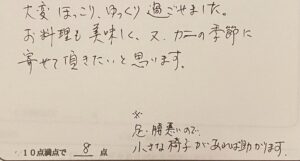 大変ほっこり、ゆっくり過ごせました。
お料理も美味しく、又、カニの季節に
寄せて頂きたいと思います。
※
足・腰悪いので、
小さな椅子があれば助かります。
10点満点で 8 点